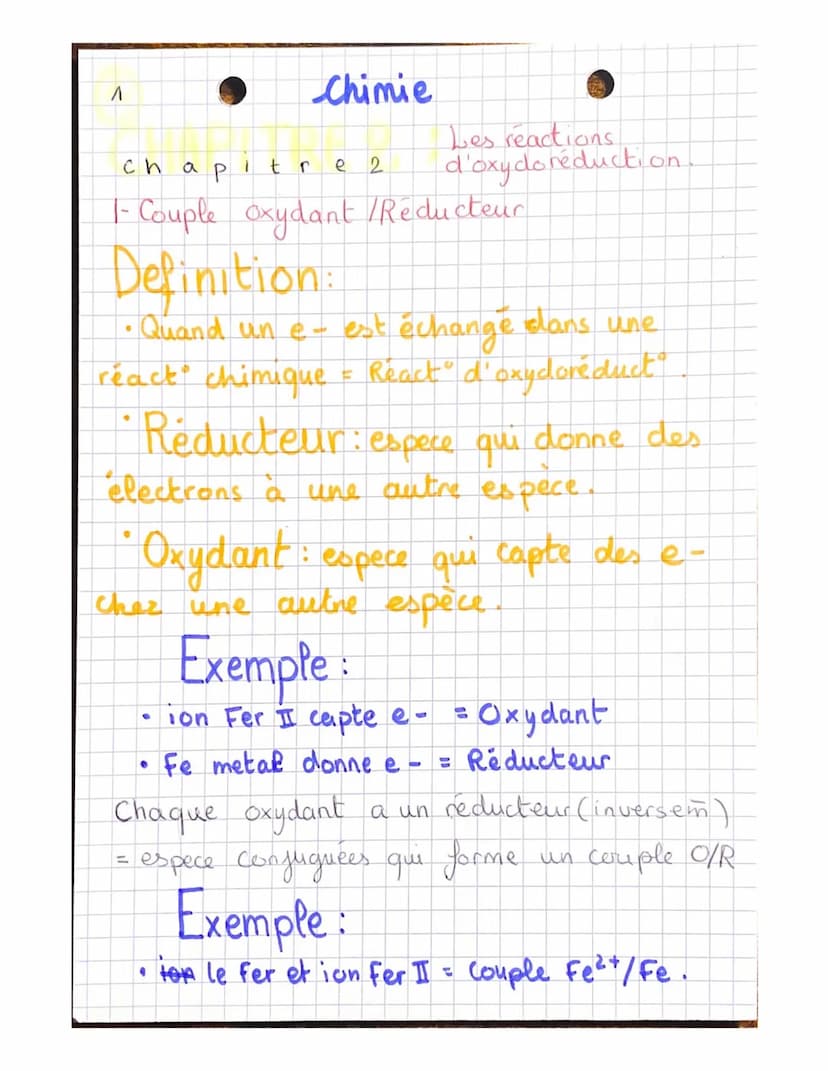 1
Chimie
Les réactions
chapitre 2 d'oxydoréduction.
1- Couple oxydant /Réducteur
Definition:
• Quand un e- est échangé dans une
réact° chimique = Réact° d'oxydoréduct°.
• Réducteur: espece qui donne des
électrons à une autre espèce.
• Oxydant: espece qui capte des e-
chez une autre espèce.
Exemple:
• ion Fer II capte e- = Oxydant
• Fe metal donne e- = Réducteur
Chaque oxydant a un réducteur (inversem̄)
= espece conjuguées qui forme un couple O/R
Exemple:
• ion le Fer et ion Fer II = Couple Fe²⁺/Fe.